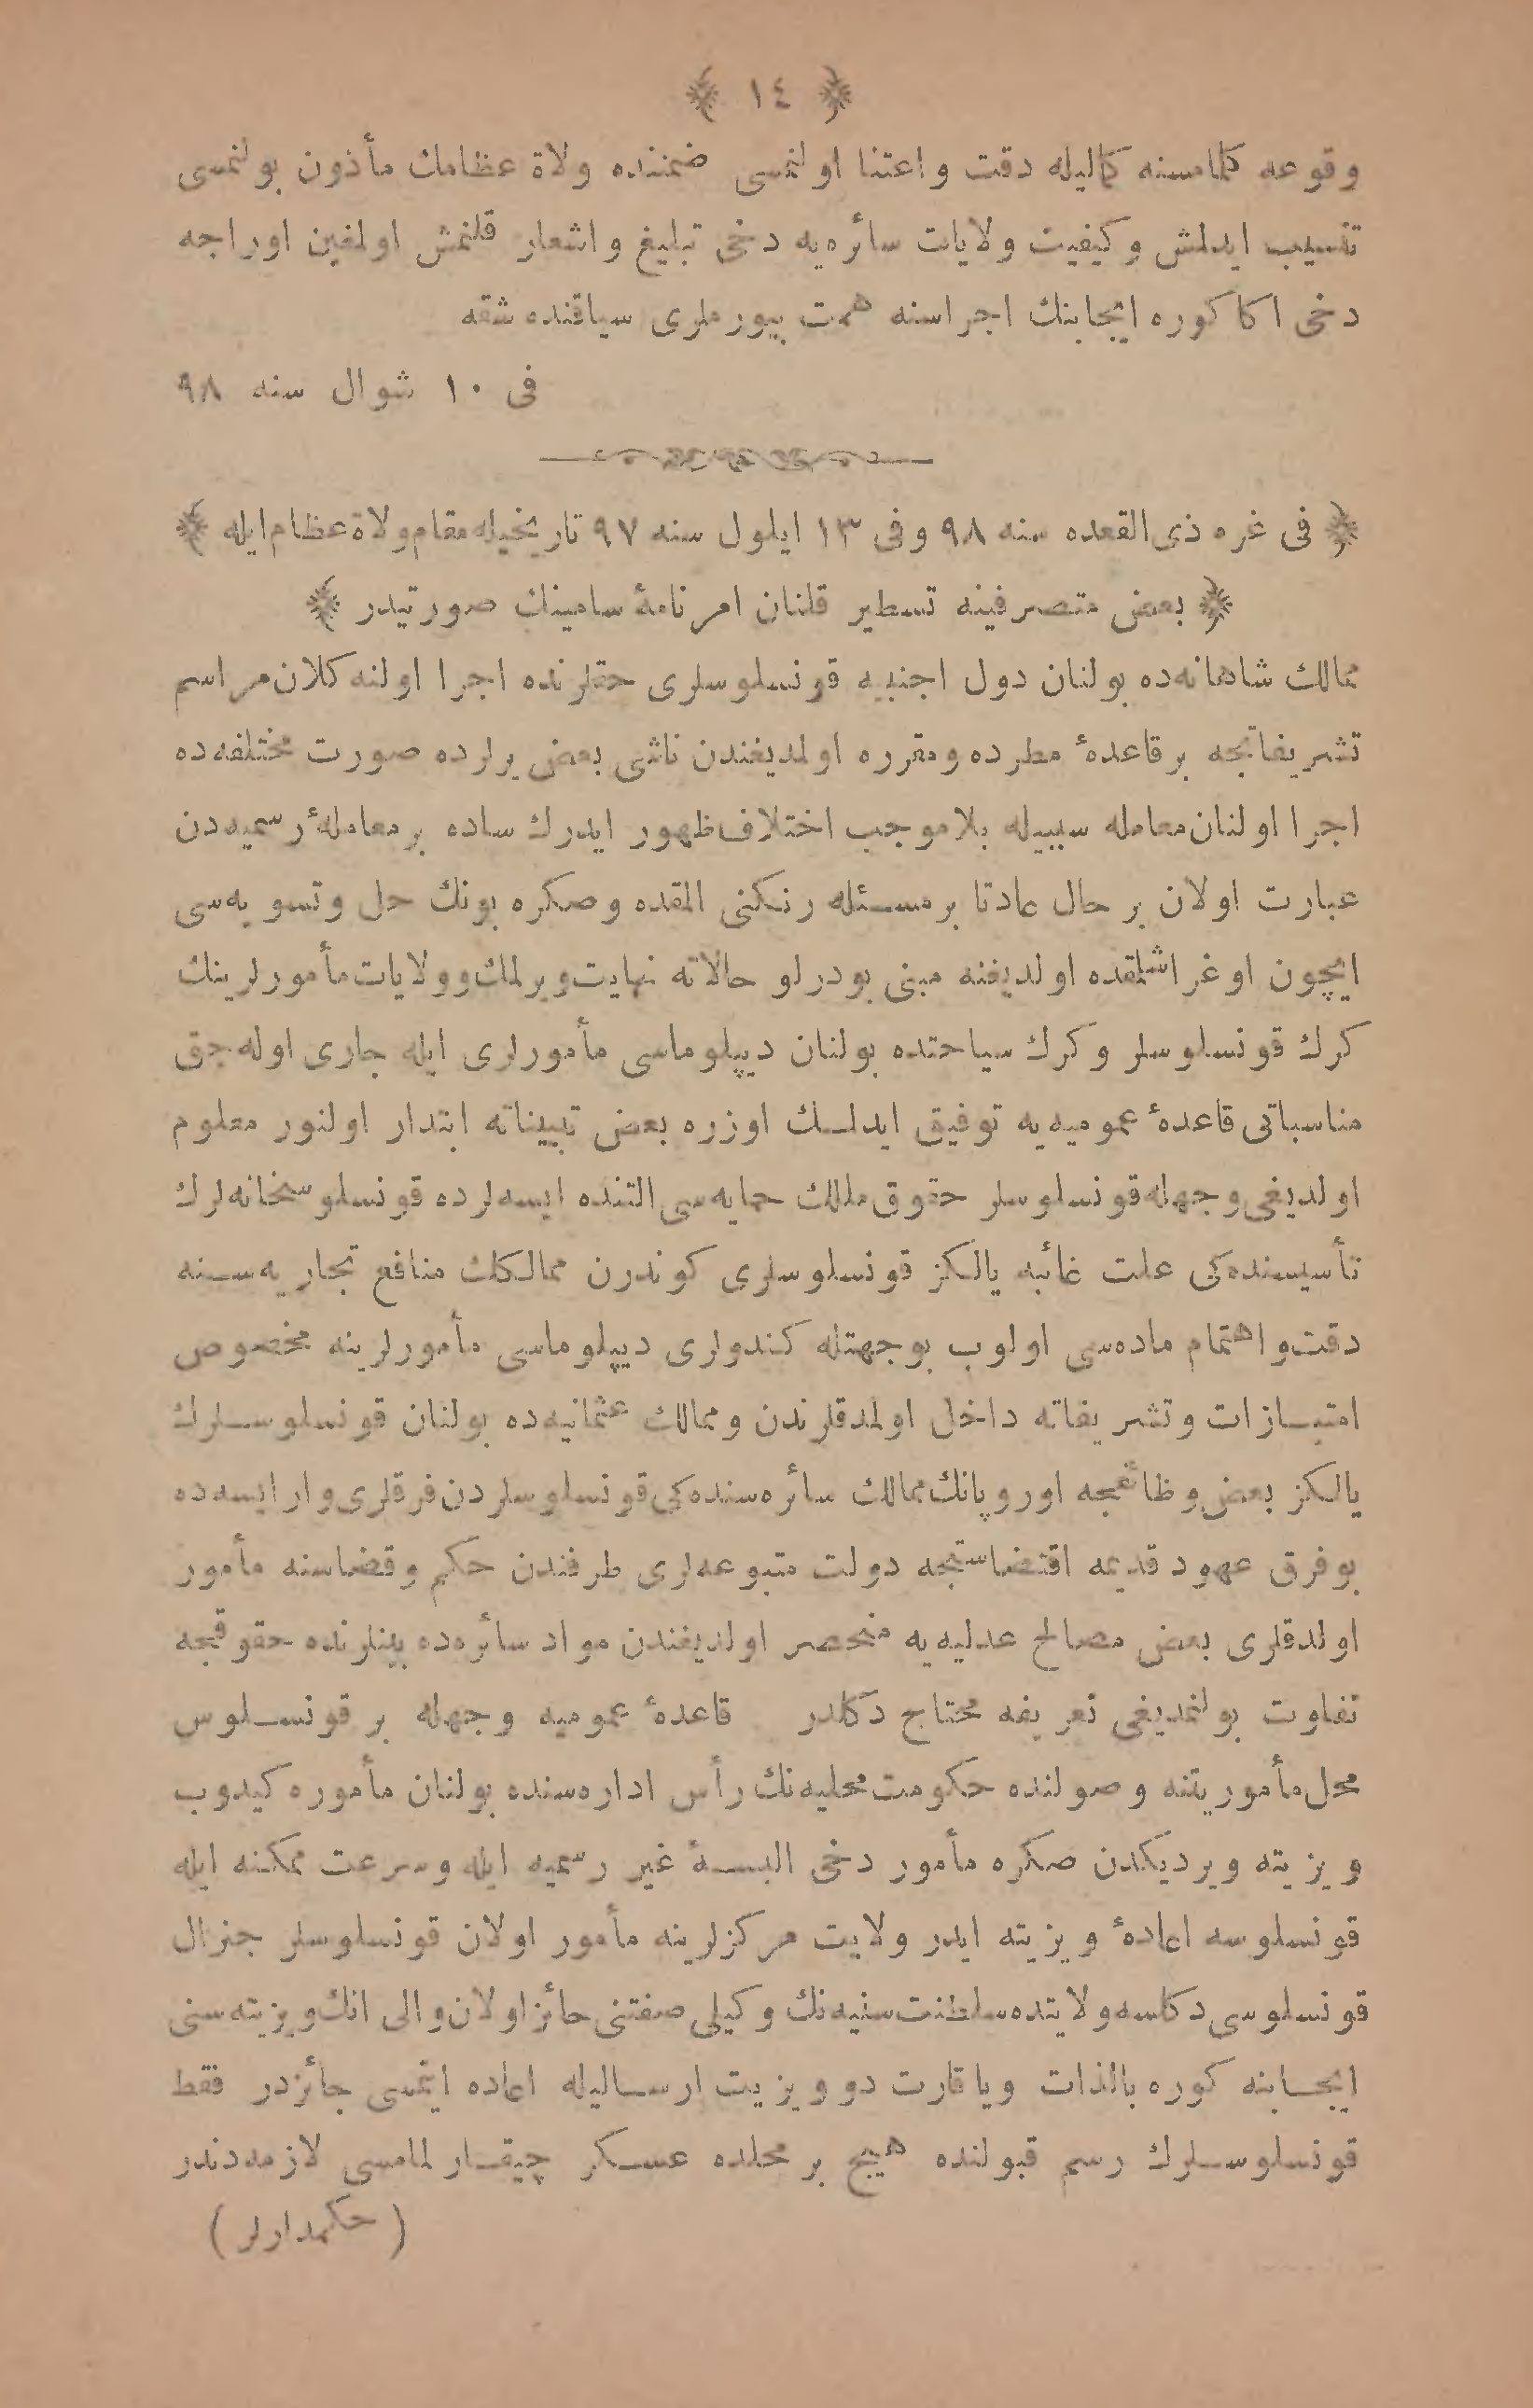 ﴿ ١٤ ﴾
وقوعه كلمامسنه كماليله دقت واعتنا اولنمسى ضمننده ولاة عظامك مأذون بولنمسى
تنسيب ايدلمش وكيفيت ولايات سائره‌يه دخى تبليغ واشعار قلنمش اولمغين اوراجه
دخى اكا كوره ايجابنك اجراسنه همت بيورملرى سياقنده شقه
فى ١٠ شوال سنه ٩٨
﴿ فى غره ذى‌القعده سنه ٩٨ وفى ١٣ ايلول سنه ٩٧ تاريخيله مقام ولاة عظام ايله ﴾
﴿ بعض متصرفينه تسطير قلنان امرنامهٔ سامينك صورتيدر ﴾
ممالك شاهانه‌ده بولنان دول اجنبيه قونسلوسلرى حقلرنده اجرا اولنه‌كلان مراسم
تشريفاتجه برقاعدهٔ مطرده ومقرره اولمديغندن ناشى بعض يرلرده صورت مختلفه‌ده
اجرا اولنان معامله سببيله بلاموجب اختلاف ظهور ايدرك ساده بر معاملهٔ رسميه‌دن
عبارت اولان بر حال عادتا برمسئله رنكنى المقده وصكره بونك حل وتسويه‌سى
ايچون اوغراشلمقده اولديغنه مبنى بودرلو حالاته نهايت ويرلمك و ولايات مأمورلرينك
كرك قونسلوسلر وكرك سياحتده بولنان ديپلوماسى مأمورلرى ايله جارى اوله‌جق
مناسباتى قاعدهٔ عموميه‌يه توفيق ايدلمك اوزره بعض تبييناته ابتدار اولنور معلوم
اولديغى وجهله قونسلوسلر حقوق ملل‌ك حمايه‌سى التنده ايسه‌لرده قونسلوسخانه‌لرك
تأسيسنده‌كى علت غائيه يالكز قونسلوسلرى كوندرن ممالكك منافع تجاريه‌سنه
دقت واهتمام ماده‌سى اولوب بوجهتله كندولرى ديپلوماسى مأمورلرينه مخصوص
امتيازات وتشريفاته داخل اولمدقلرندن وممالك عثمانيه‌ده بولنان قونسلوسلرك
يالكز بعض وظائفجه اوروپانك ممالك سائره‌سنده‌كى قونسلوسلردن فرقلرى وار ايسه‌ده
بوفرق عهود قديمه اقتضاسنجه دولت متبوعه‌لرى طرفندن حكم وقضاسنه مأمور
اولدقلرى بعض مصالح عدليه‌يه منحصر اولديغندن مواد سائره‌ده بينلرنده حقوقجه
تفاوت بولنمديغى تعريفه محتاج دكلدر قاعدهٔ عموميه وجهله بر قونسلوس
محل مأموريتنه وصولنده حكومت محليه‌نك رأس اداره‌سنده بولنان مأموره كيدوب
ويزيته ويرديكدن صكره مأمور دخى البسهٔ غير رسميه ايله وسرعت ممكنه ايله
قونسلوسه اعادهٔ ويزيته ايدر ولايت مركزلرينه مأمور اولان قونسلوسلر جنرال
قونسلوسى دكلسه ولايتده سلطنت سنيه‌نك وكيلى صفتنى حائز اولان والى انك ويزيته‌سنى
ايجابنه كوره بالذات ويا قارت دو ويزيت ارساليله اعاده ايتمسى جائزدر فقط
قونسلوسلرك رسم قبولنده هيچ بر محلده عسكر چيقارلمامسى لازمه‌دندر
( حكمدارلر )